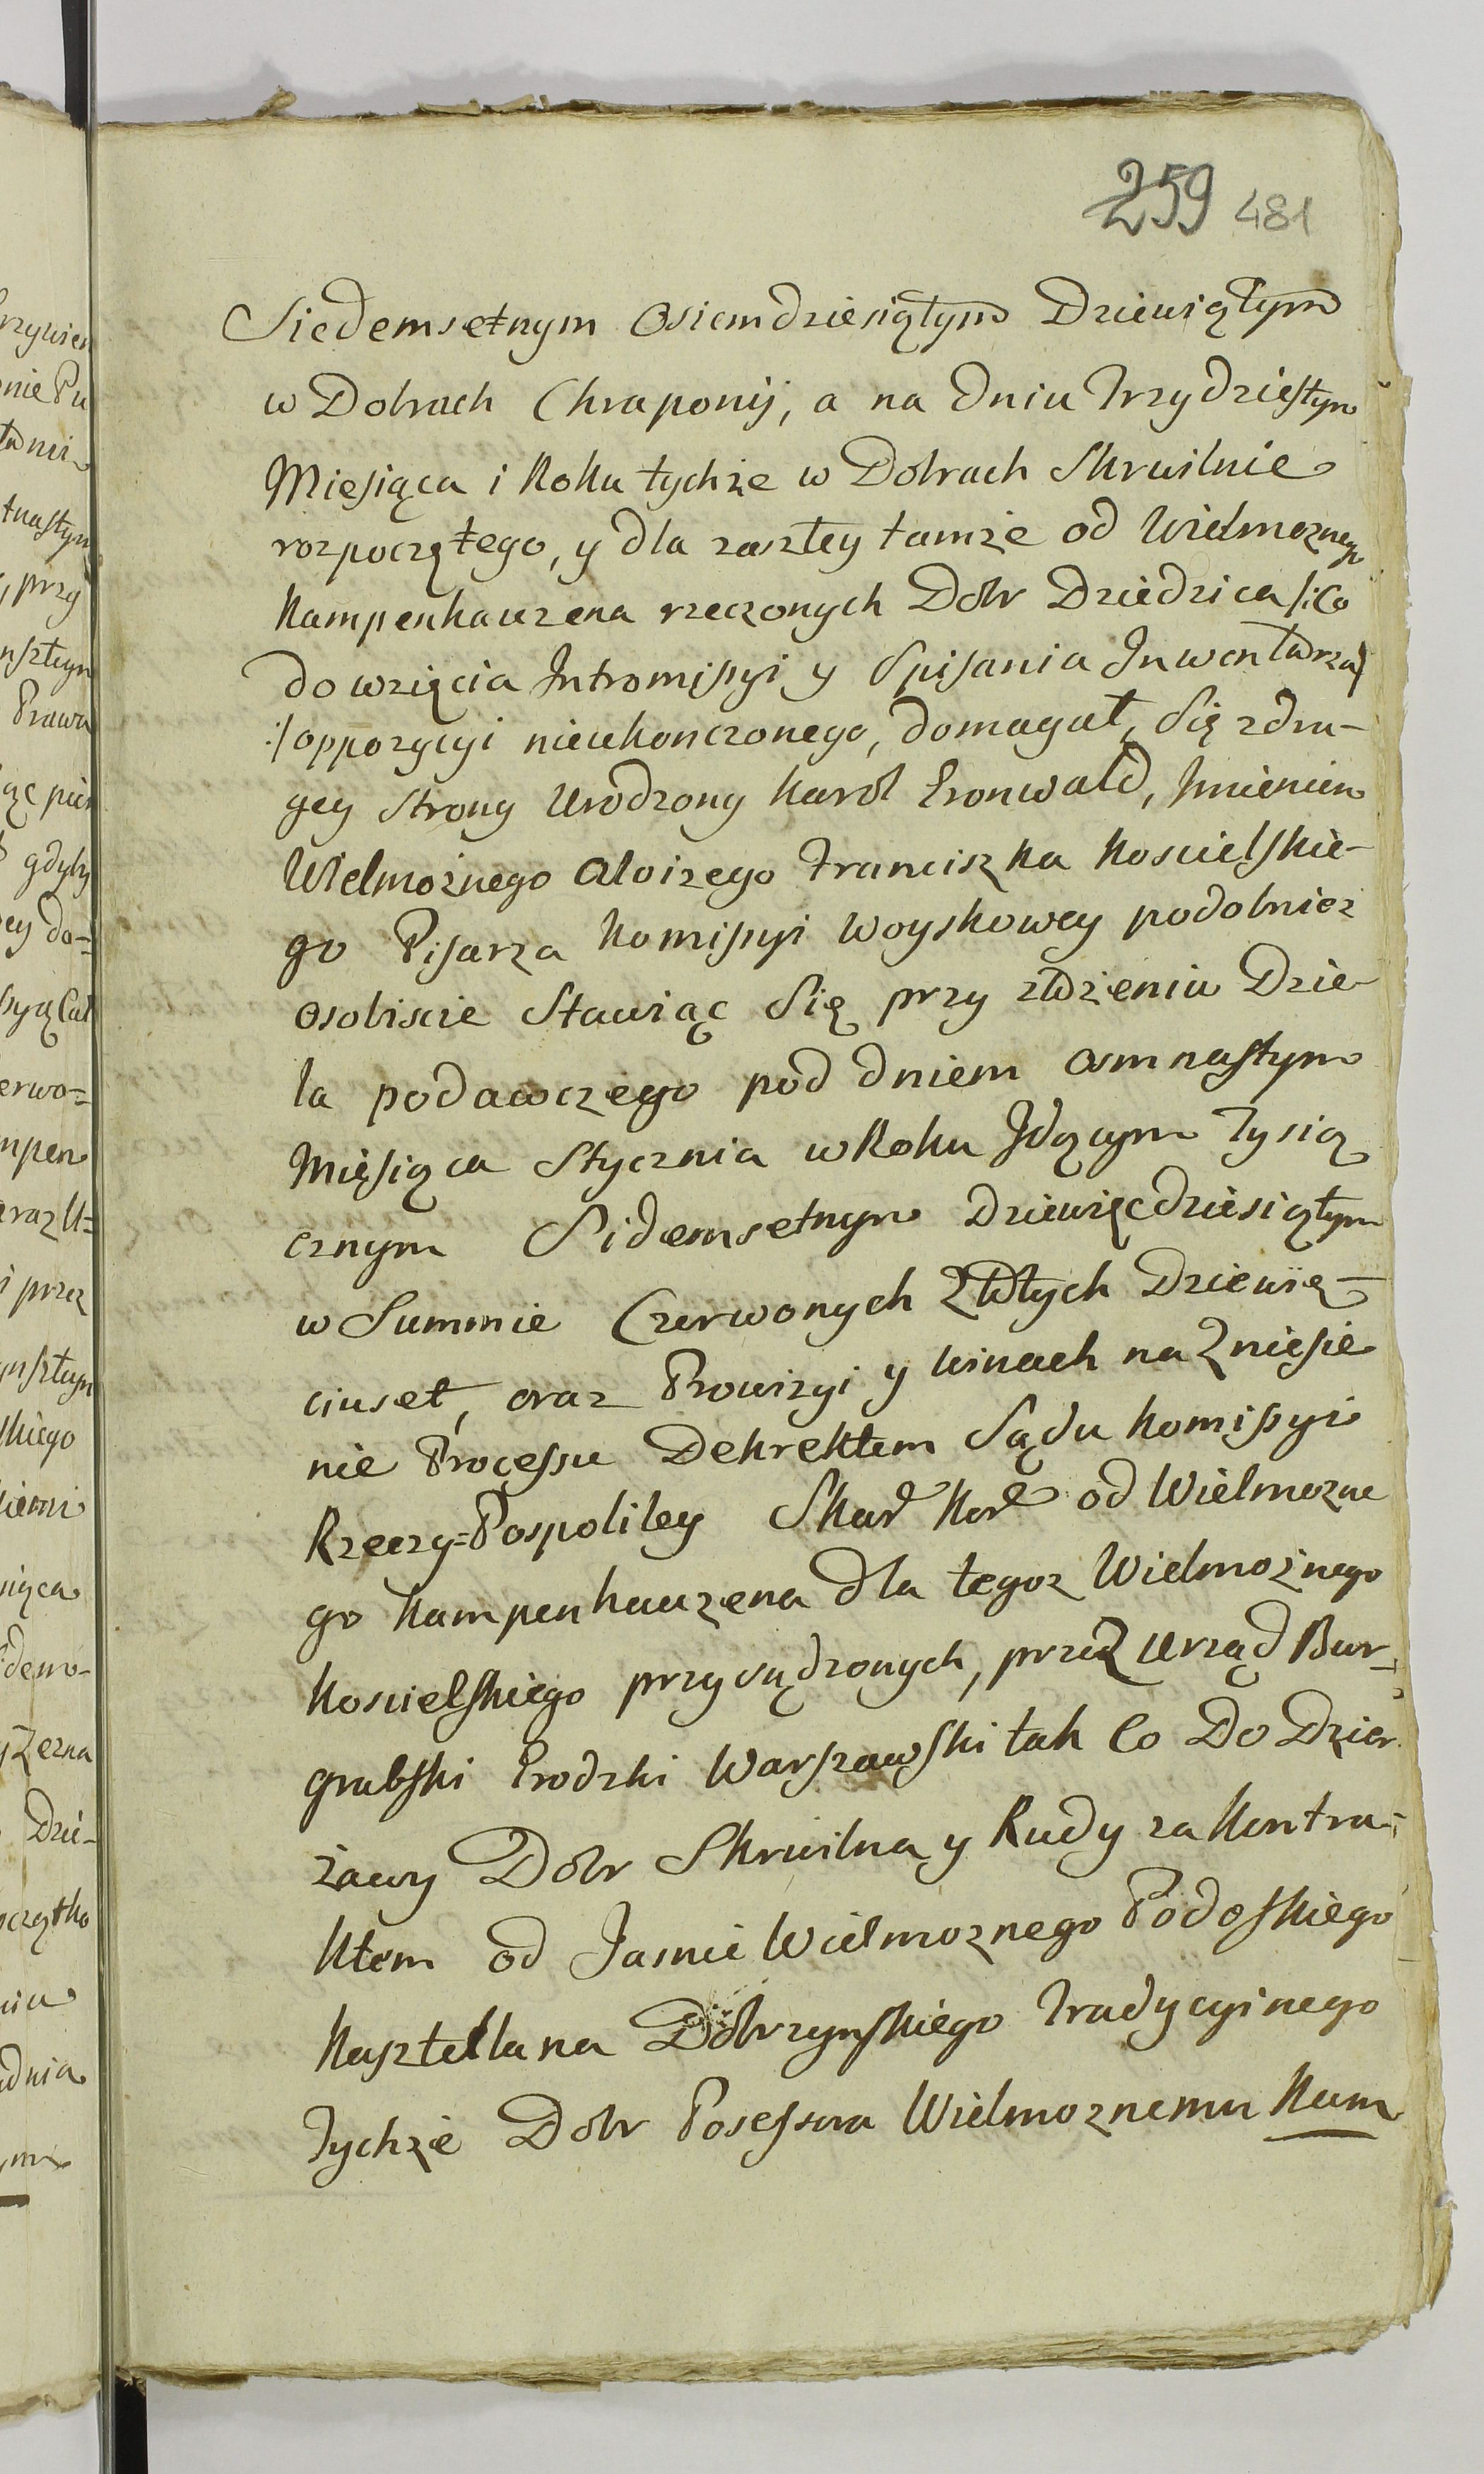 259 481
Siedemsetnym Osiemdziesiątym Dziewiątym
w Dobrach Chraponij, a na dniu Trzydziestym
Miesiąca i Roku tychże w Dobrach Skrwilnie
rozpoczętego, y dla zaszłey tamże od Wielmoznego
Kampenhauzena rzeczonych Dobr Dziedzica /: Co
do wzięcia Intromissyi y Spisania Inwentarza
:/ oppozycyi nieukonczonego, domagał Się z dru-
gey Strony Urodzony Karol Gronwald, Imieniem
Wielmożnego Aloizego Franciszka Koscielskie-
go Pisarza Komissyi Woyskowey podobniez
Osobiscie Stawiąc Się przy zdzieniu Dzie-
la podawczego pod dniem Osmnastym
Mięsiąca Stycznia w Roku Idącym Tysią
cznym Sidemsetnym Dziewięcdziesiątym
w Summie Czerwonych Złłtych Dziewię-
ciuset, oraz Prowizyi y Winach na Zniesie
nie Processu Dekrektem Sądu Komissyi
Rzeczy=Pospolitey Skar Kor od Wielmozne
go Kampenhauzena dla tegoz Wielmożnego
Koscielskiego przysądzonych, przez Urząd Bur-
grabski Grodzki Warszawski tak Co Do Dzier
żawy Dobr Skrwilna y Rudy za Kontra-
ktem od Jasnie Wielmoznego Podoskiego
Kasztellana Dobrzynskiego Tradycyinego
Tychże Dobr Posessora Wielmoznemu Kam